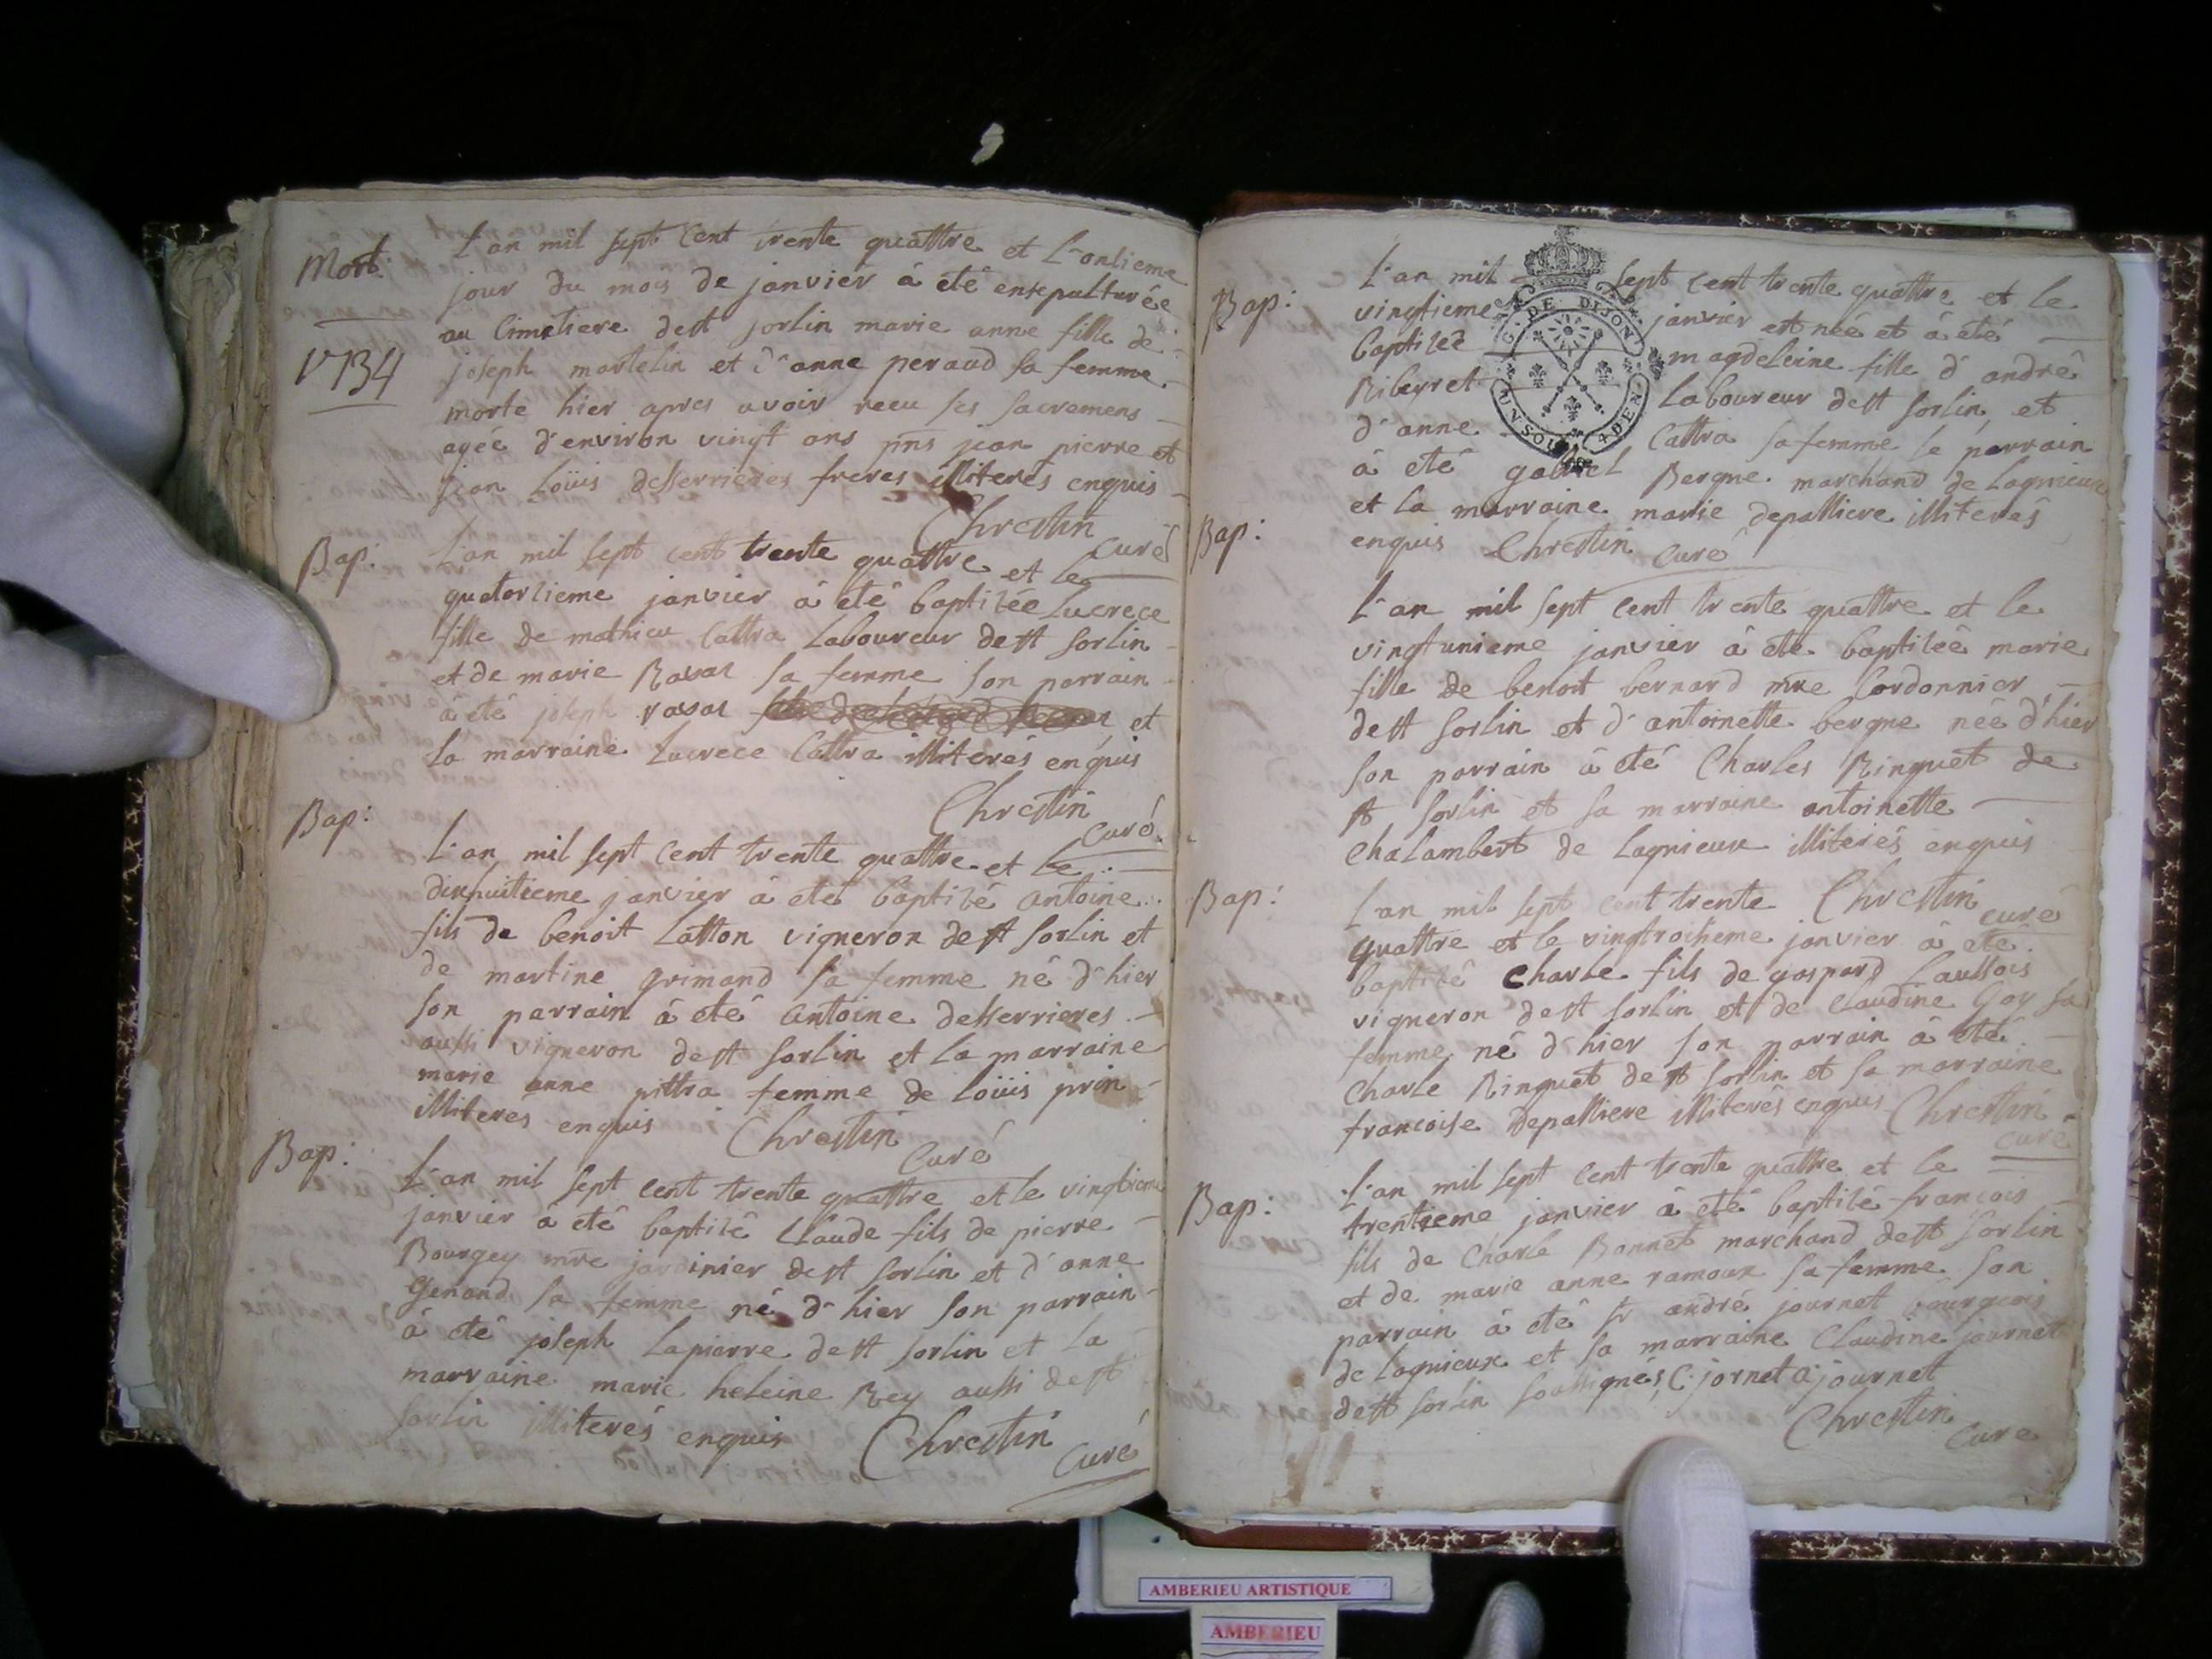 Mort:
1734
L'an mil sept cent trente quattre et l'onlieme
jour du mois de janvier à été ensepulturée
au Cimetiere de st sorlin marie anne fille de
joseph martelin et d'anne peraud sa femme
morte hier apres avoir receu ses sacremens
agée d'environ vingt ans pns jean pierre et
jean Loüis desserrieres freres illiterés enquis
Chrestin
Curé
Bap:
L'an mil sept cent trente quattre et le
quatorlieme janvier à été baptilée Lucrece
fille de mathieu Cattra Laboureur de st sorlin
et de marie Ravat sa femme son parrain
à été joseph ravat et
la marraine Lucrece Cattra illiterés enquis
Chrestin
Curé
Bap:
L'an mil sept cent trente quattre et le
dixhuitieme janvier à eté baptilé antoine
fils de benoit Latton vigneron de st sorlin et
de martine grimand sa femme né d'hier
son parrain à eté antoine desserrieres
aussi vigneron de st sorlin et la marraine
marie anne pittra femme de loüis prin
illiterés enquis Chrestin
Curé
Bap:
L'an mil sept cent trente quattre et le vingtieme
janvier à eté baptilé Claude fils de pierre
Bourgey mre jardinier de st sorlin et d'anne
Genand sa femme né d'hier son parrain
à eté joseph Lapierre de st sorlin et la
marraine marie heleine Rey aussi de st
sorlin illiterés enquis Chrestin
Curé
Bap:
L'an mil sept cent trente quattre et le
vingtieme janvier est née et à eté
baptilée magdeleine fille d'andré
Ribeyret Laboureur de st sorlin et
d'anne Cattra sa femme le parrain
à eté gabriel Bergne marchand de Lagnieux
et la marraine marie depalliere illiterés
enquis Chrestin Curé
G. DE DIJON
UN SOL 4 DEN
Bap:
L'an mil sept cent trente quattre et le
vingtunieme janvier à eté baptilée marie
fille de benoit bernard mre Cordonnier
de st sorlin et d'antoinette bergne née d'hier
son parrain à eté Charles Ringuet de
st sorlin et sa marraine antoinette
Chalambert de Lagnieux illiterés enquis
Chrestin
curé
Bap:
L'an mil sept cent trente
quattre et le vingtroisieme janvier à eté
baptilé Charle fils de gaspard Laussois
vigneron de st sorlin et de Claudine Goy sa
femme né d'hier son parrain à eté
Charle Ringuet de st sorlin et sa marraine
francoise Depalliere illiterés enquis Chrestin
curé
Bap:
L'an mil sept cent trente quattre et le
trentieme janvier à eté baptilé francois
fils de Charle Bonnet marchand de st sorlin
et de marie anne ramoux sa femme son
parrain à eté sr andré journet bourgeois
de lagnieux et sa marraine Claudine journet
de st sorlin soussignés C. jornet a journet
Chrestin
Curé
AMBERIEU ARTISTIQUE
AMBERIEU